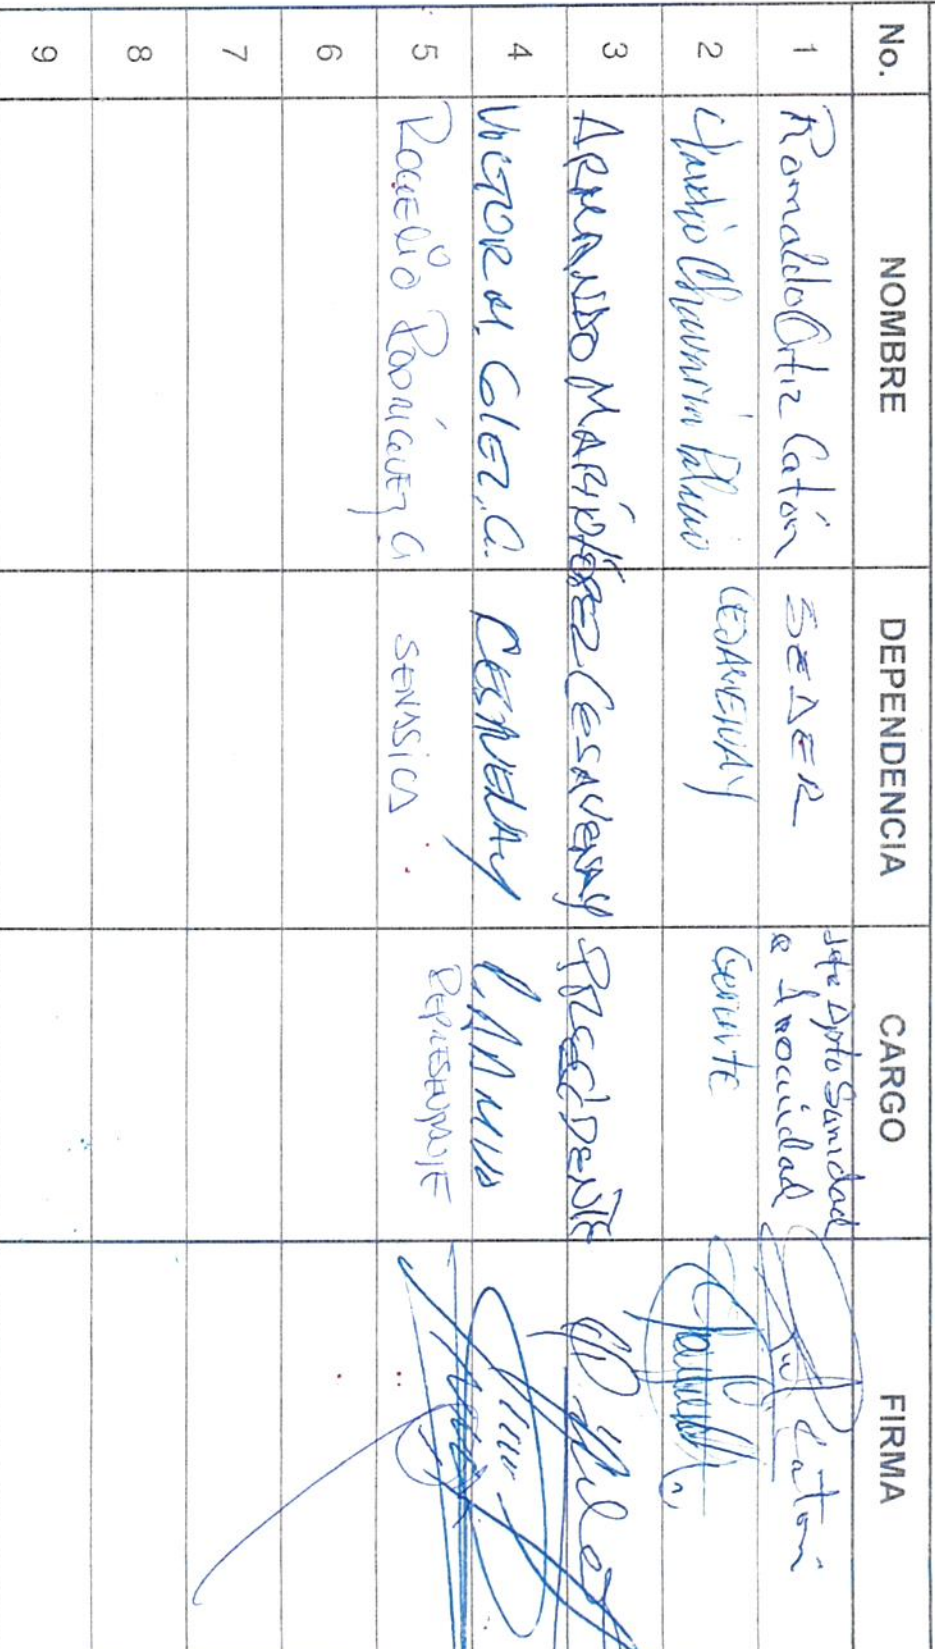 No. NOMBRE DEPENDENCIA CARGO FIRMA
1 Romaldo Ortiz Catón SEDER Jefe Dpto Sanidad
e Inocuidad Catón
2 Claudio Chavarín Gerente
3 ARMANDO MARIO LOPEZ CESAVENAY PRECIDENTE
4 VICTOR M. GLEZ. C. CESAVENAY
5 ROGELIO RODRÍGUEZ G SENASICA REPRESENTANTE
6
7
8
9